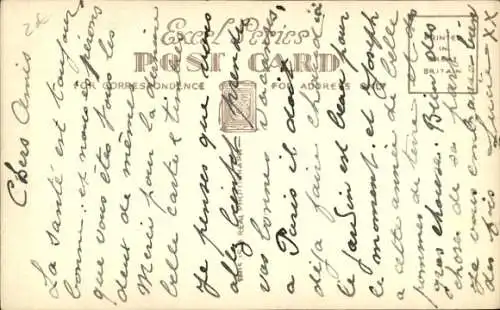 2€
Excel Series
POST CARD
FOR CORRESPONDENCE
FOR ADDRESS ONLY
PRINTED
IN
BRITAIN
Chers Amis
La santé est toujours
bonne et nous espérons
que vous êtes tous les
deux de même
Merci pour la jolie
belle carte & timbres
Je penses que vous
allez bientôt prendre
vos bonnes vacances,
a Paris il doit
déja faire chaud ici
le jardin est beau pour
le moment et Joseph
a cette année de belle
pommes de terre et des
gros choux. Bien des
choses de sa part
je vous embrasse bien
des fois
xx